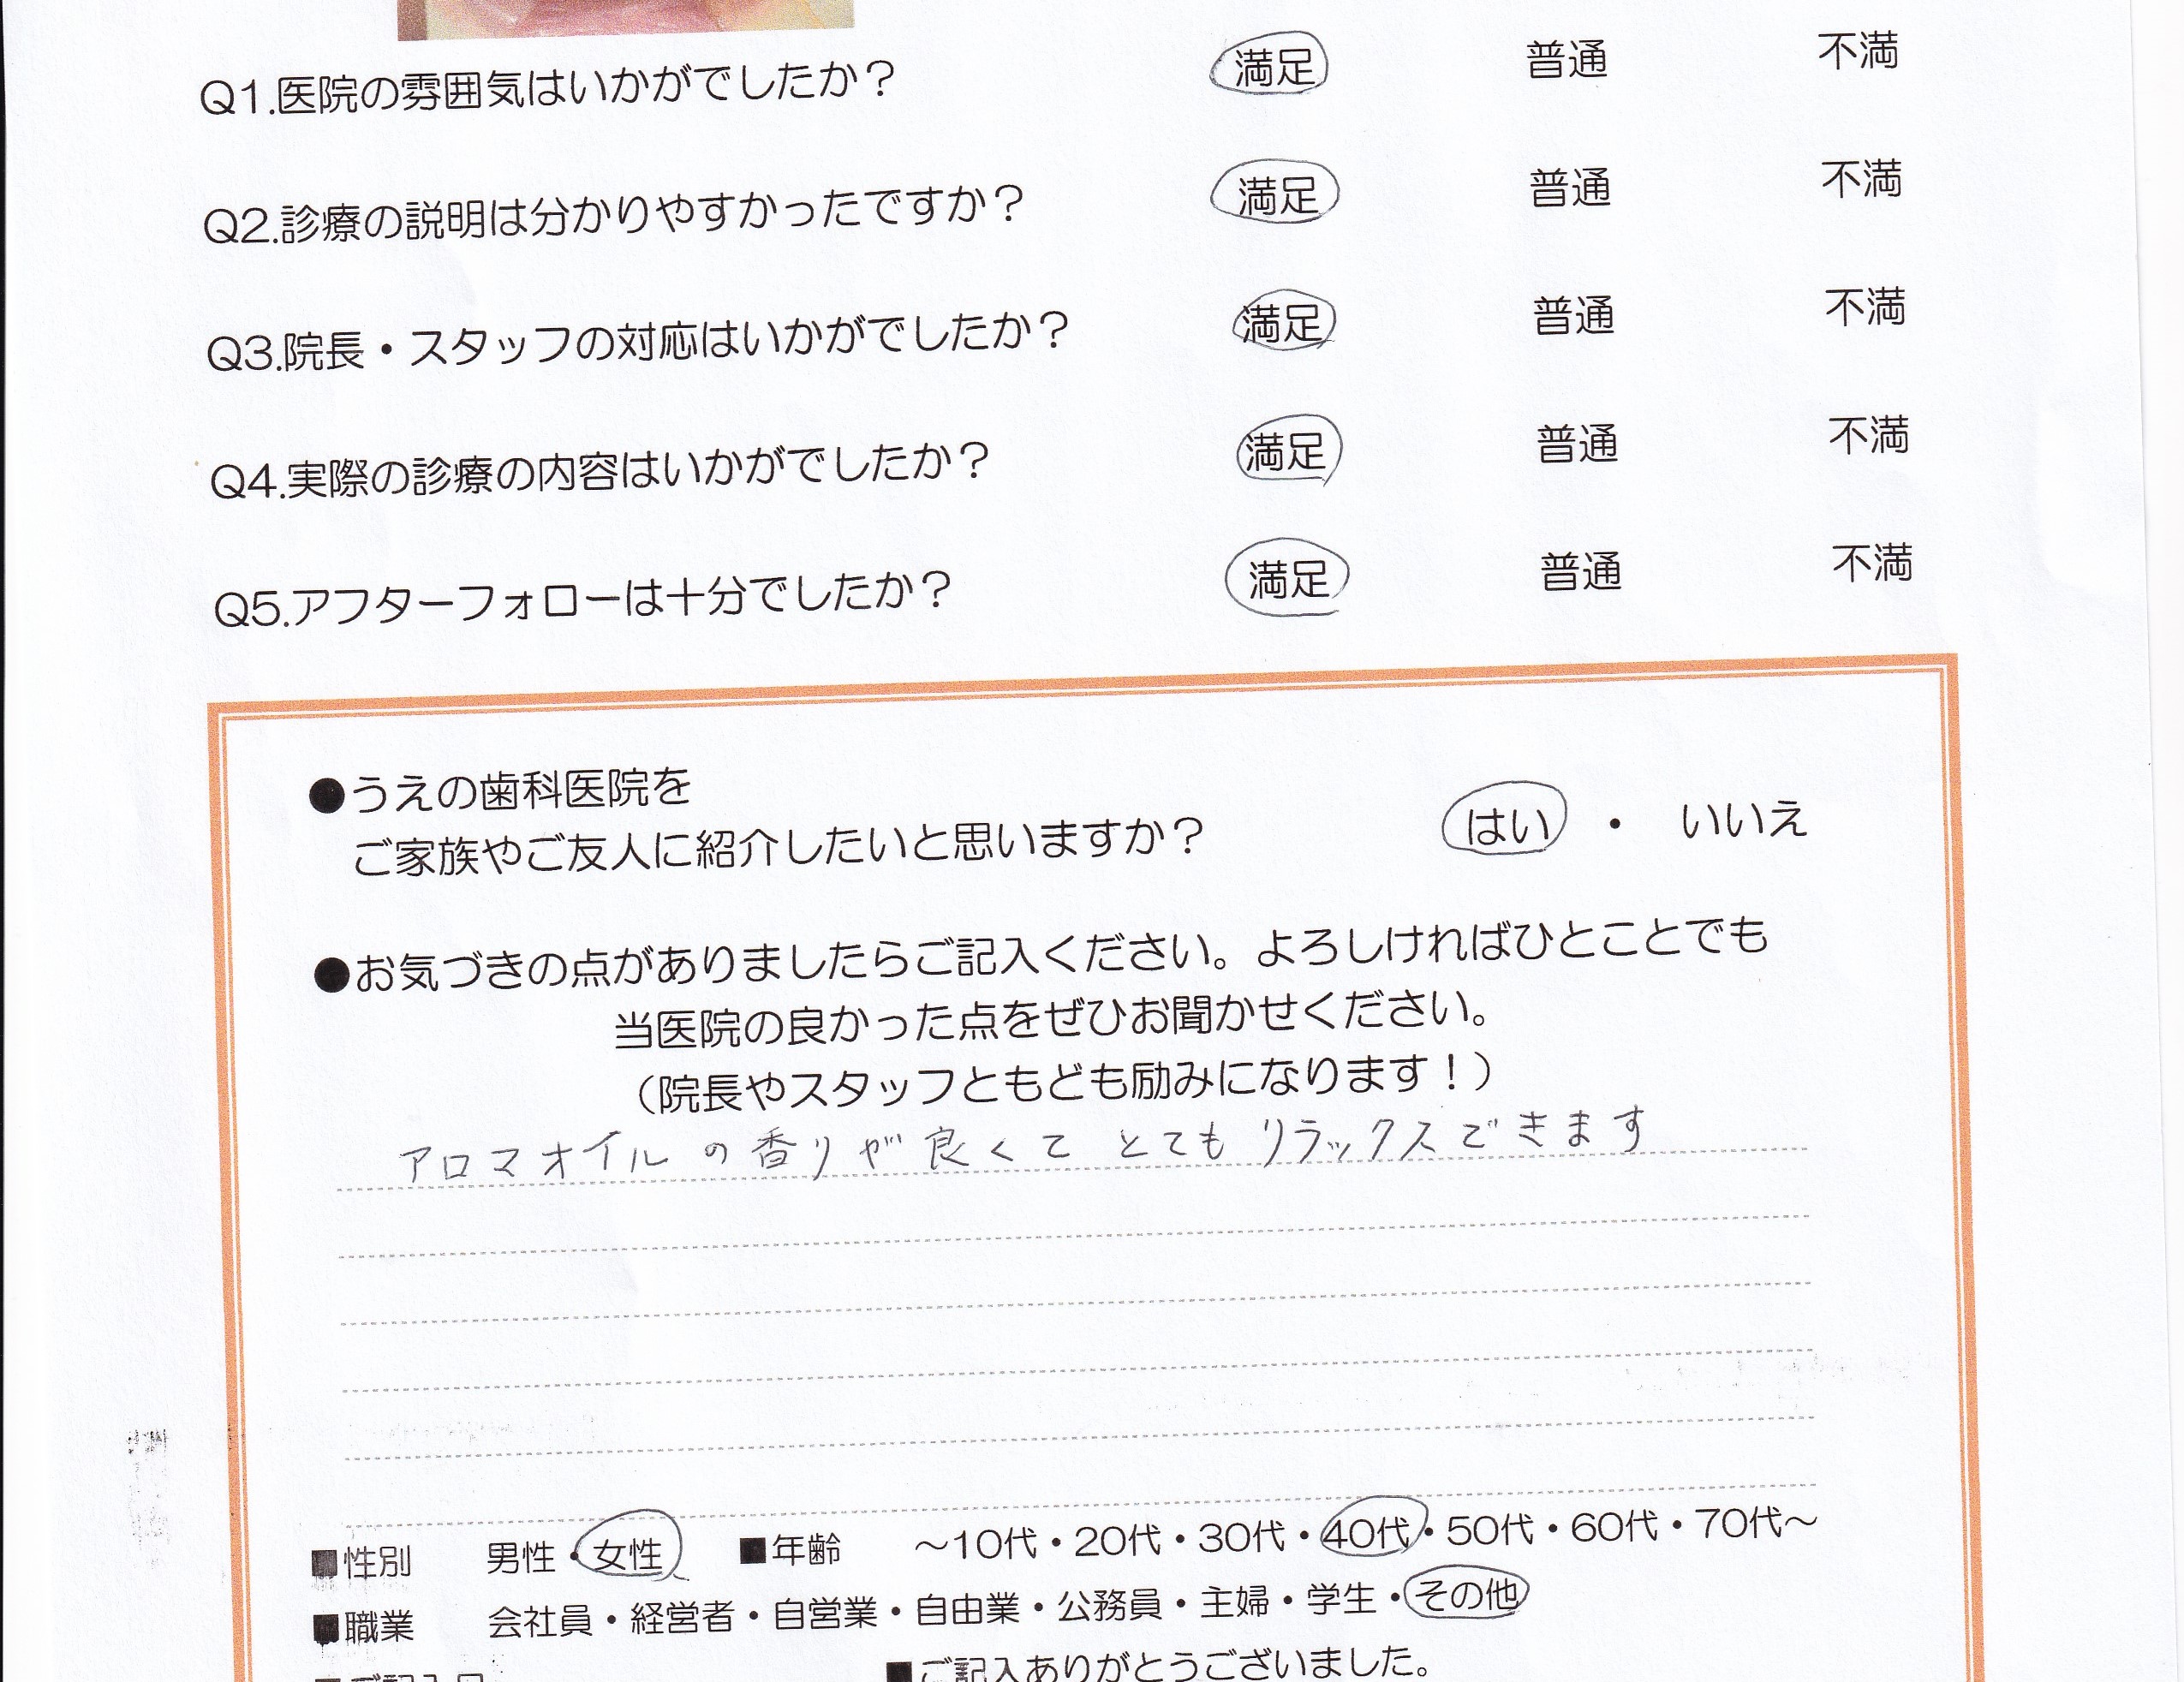 Q1.医院の雰囲気はいかがでしたか？ 満足 普通 不満
Q2.診療の説明は分かりやすかったですか？ 満足 普通 不満
Q3.院長・スタッフの対応はいかがでしたか？ 満足 普通 不満
Q4.実際の診療の内容はいかがでしたか？ 満足 普通 不満
Q5.アフターフォローは十分でしたか？ 満足 普通 不満
●うえの歯科医院を
ご家族やご友人に紹介したいと思いますか？ はい ・ いいえ
●お気づきの点がありましたらご記入ください。よろしければひとことでも
当医院の良かった点をぜひお聞かせください。
（院長やスタッフともども励みになります！）
アロマオイルの香りが良くて とても リラックスできます
■性別 男性・女性 ■年齢 ～10代・20代・30代・40代・50代・60代・70代～
■職業 会社員・経営者・自営業・自由業・公務員・主婦・学生・その他
■ご記入ありがとうございました。